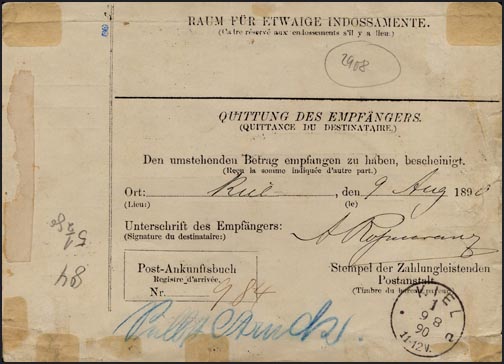 RAUM FÜR ETWAIGE INDOSSAMENTE.
(Cadre réservé aux endossements s'il y a lieu.)
2908
QUITTUNG DES EMPFÄNGERS.
(QUITTANCE DU DESTINATAIRE.)
Den umstehenden Betrag empfangen zu haben, bescheinigt.
(Reçu la somme indiquée d'autre part.)
Ort: Kiel, den 9 Aug 189
(Lieu:) (le)
Unterschrift des Empfängers:
(Signature du destinataire:)
Post-Ankunftsbuch
Registre d'arrivée.
Nr. 984
Stempel der Zahlungleistenden
Postanstalt.
(Timbre du bureau payeur.)
KIEL
1
9 8
90
11-12V.
2
84